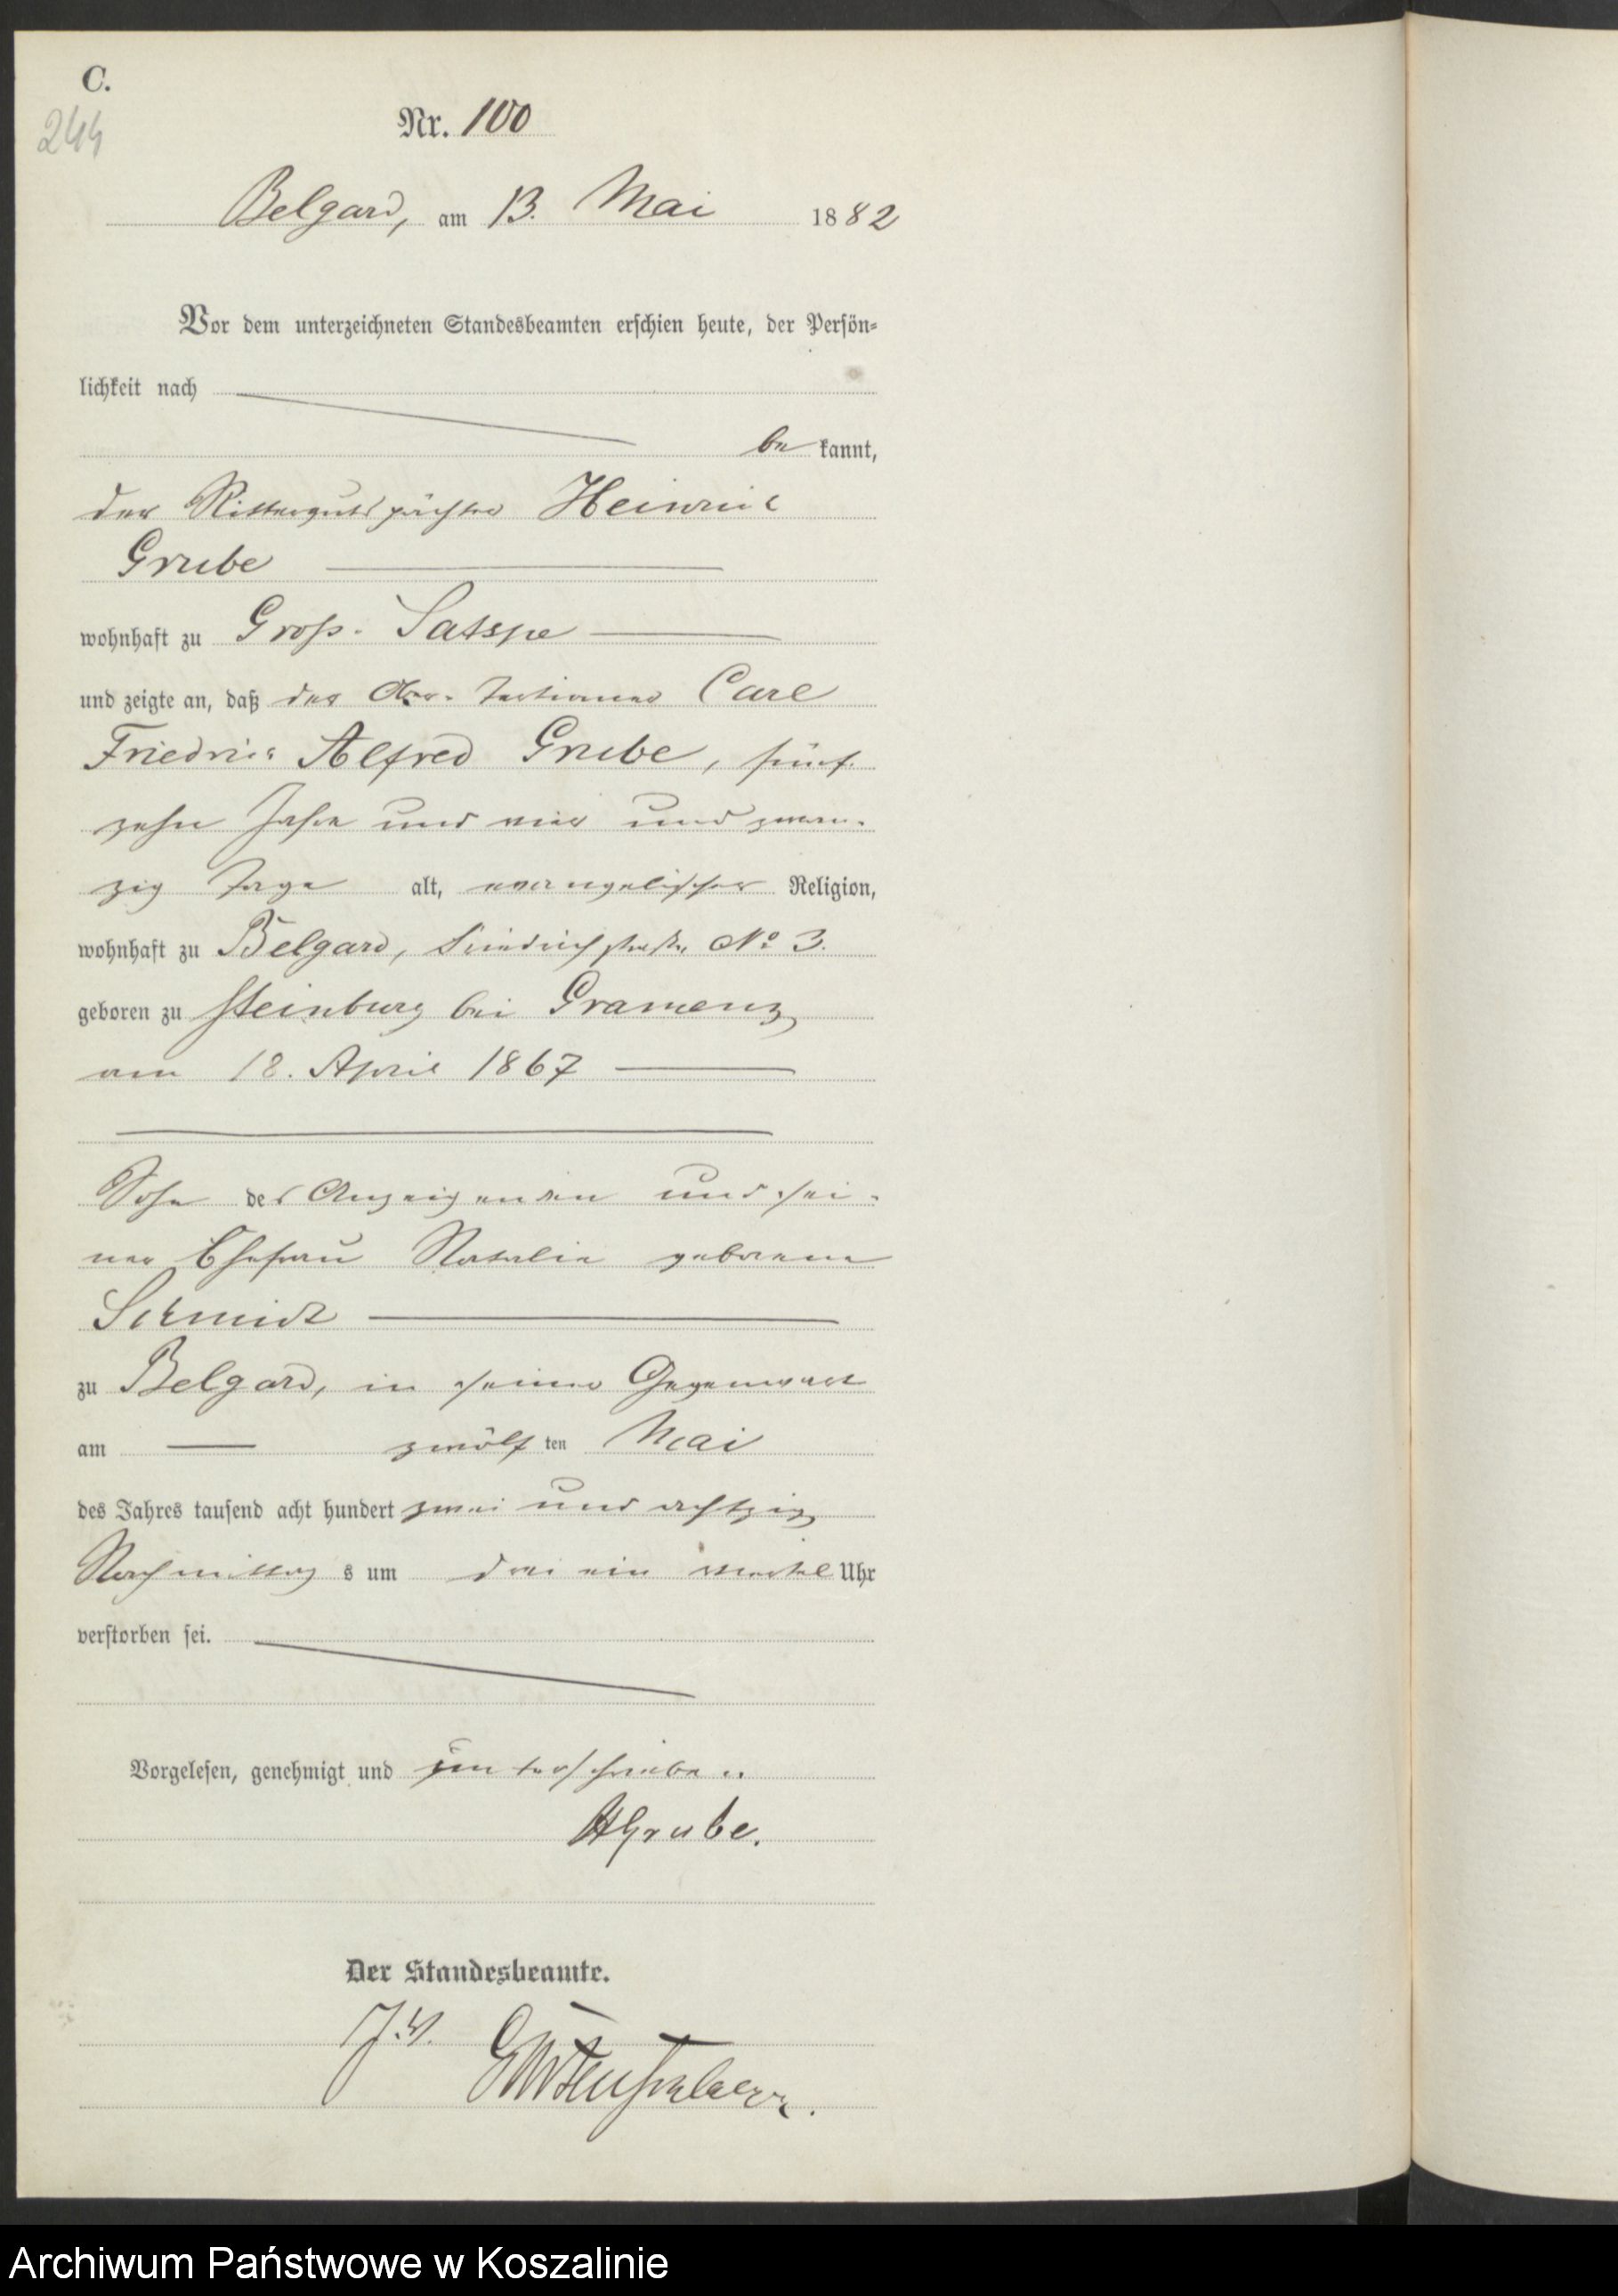 C.
244
Nr. 100
Belgard, am 13. Mai 1882
Vor dem unterzeichneten Standesbeamten erschien heute, der Persön-
lichkeit nach
be kannt,
der Rittergutspächter Heinrich
Grube
wohnhaft zu Groß-Satspe
und zeigte an, daß der Ober-Tertianer Carl
Friedrich Alfred Grube, fünf-
zehn Jahre und vier und zwan-
zig Tage alt, evangelischer Religion,
wohnhaft zu Belgard, Friedrichstraße No 3.
geboren zu Steinburg bei Gramenz
am 18. April 1867
Sohn des Anzeigenden und sei-
ner Ehefrau Natalie geborene
Schmidt
zu Belgard, in seiner Gegenwart
am zwölf ten Mai
des Jahres tausend acht hundert zwei und achtzig
Nachmittag s um drei ein viertel Uhr
verstorben sei.
Vorgelesen, genehmigt und unterschrieben
HGrube.
Der Standesbeamte.
J.V.
Archiwum Państwowe w Koszalinie